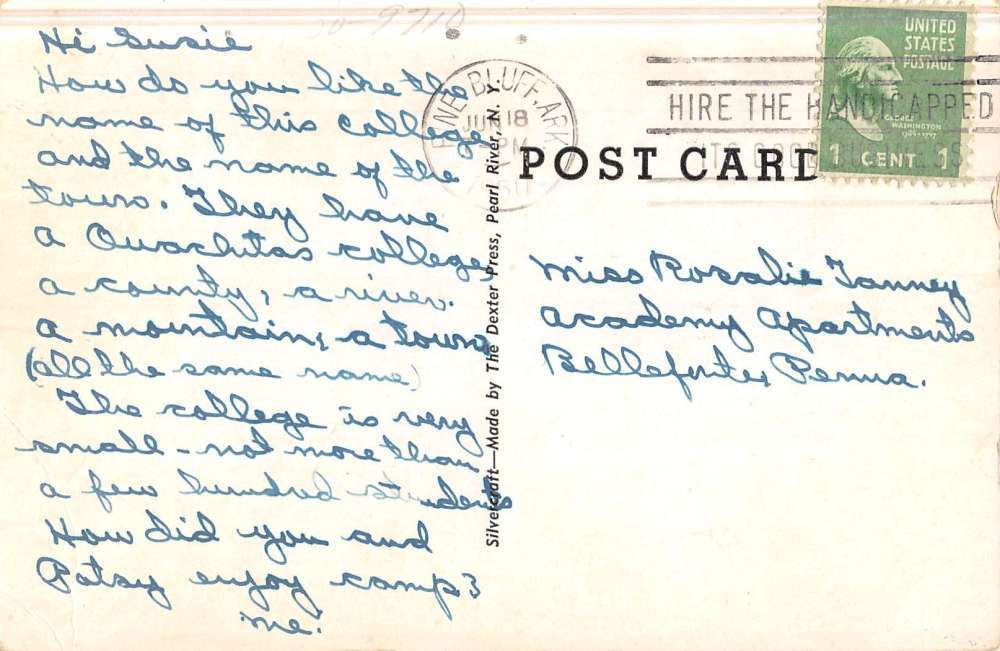 Hi Susie
How do you like the
name of this college
and the name of the
town. They have
a Ouachitas college,
a county, a river.
a mountain, a town
(all the same name)
The college is very
small - not more than
a few hundred students
How did you and
Patsy enjoy camp?
Me.
Silvercraft—Made by The Dexter Press, Pearl River, N. Y.
PINE BLUFF, ARK
JUN 18
PM
HIRE THE HANDICAPPED
ITS GOOD BUSINESS
UNITED
STATES
POSTAGE
GEORGE
WASHINGTON
1 CENT 1
POST CARD
Miss Rosalie Tanney
Academy Apartments
Bellefonte, Penna.